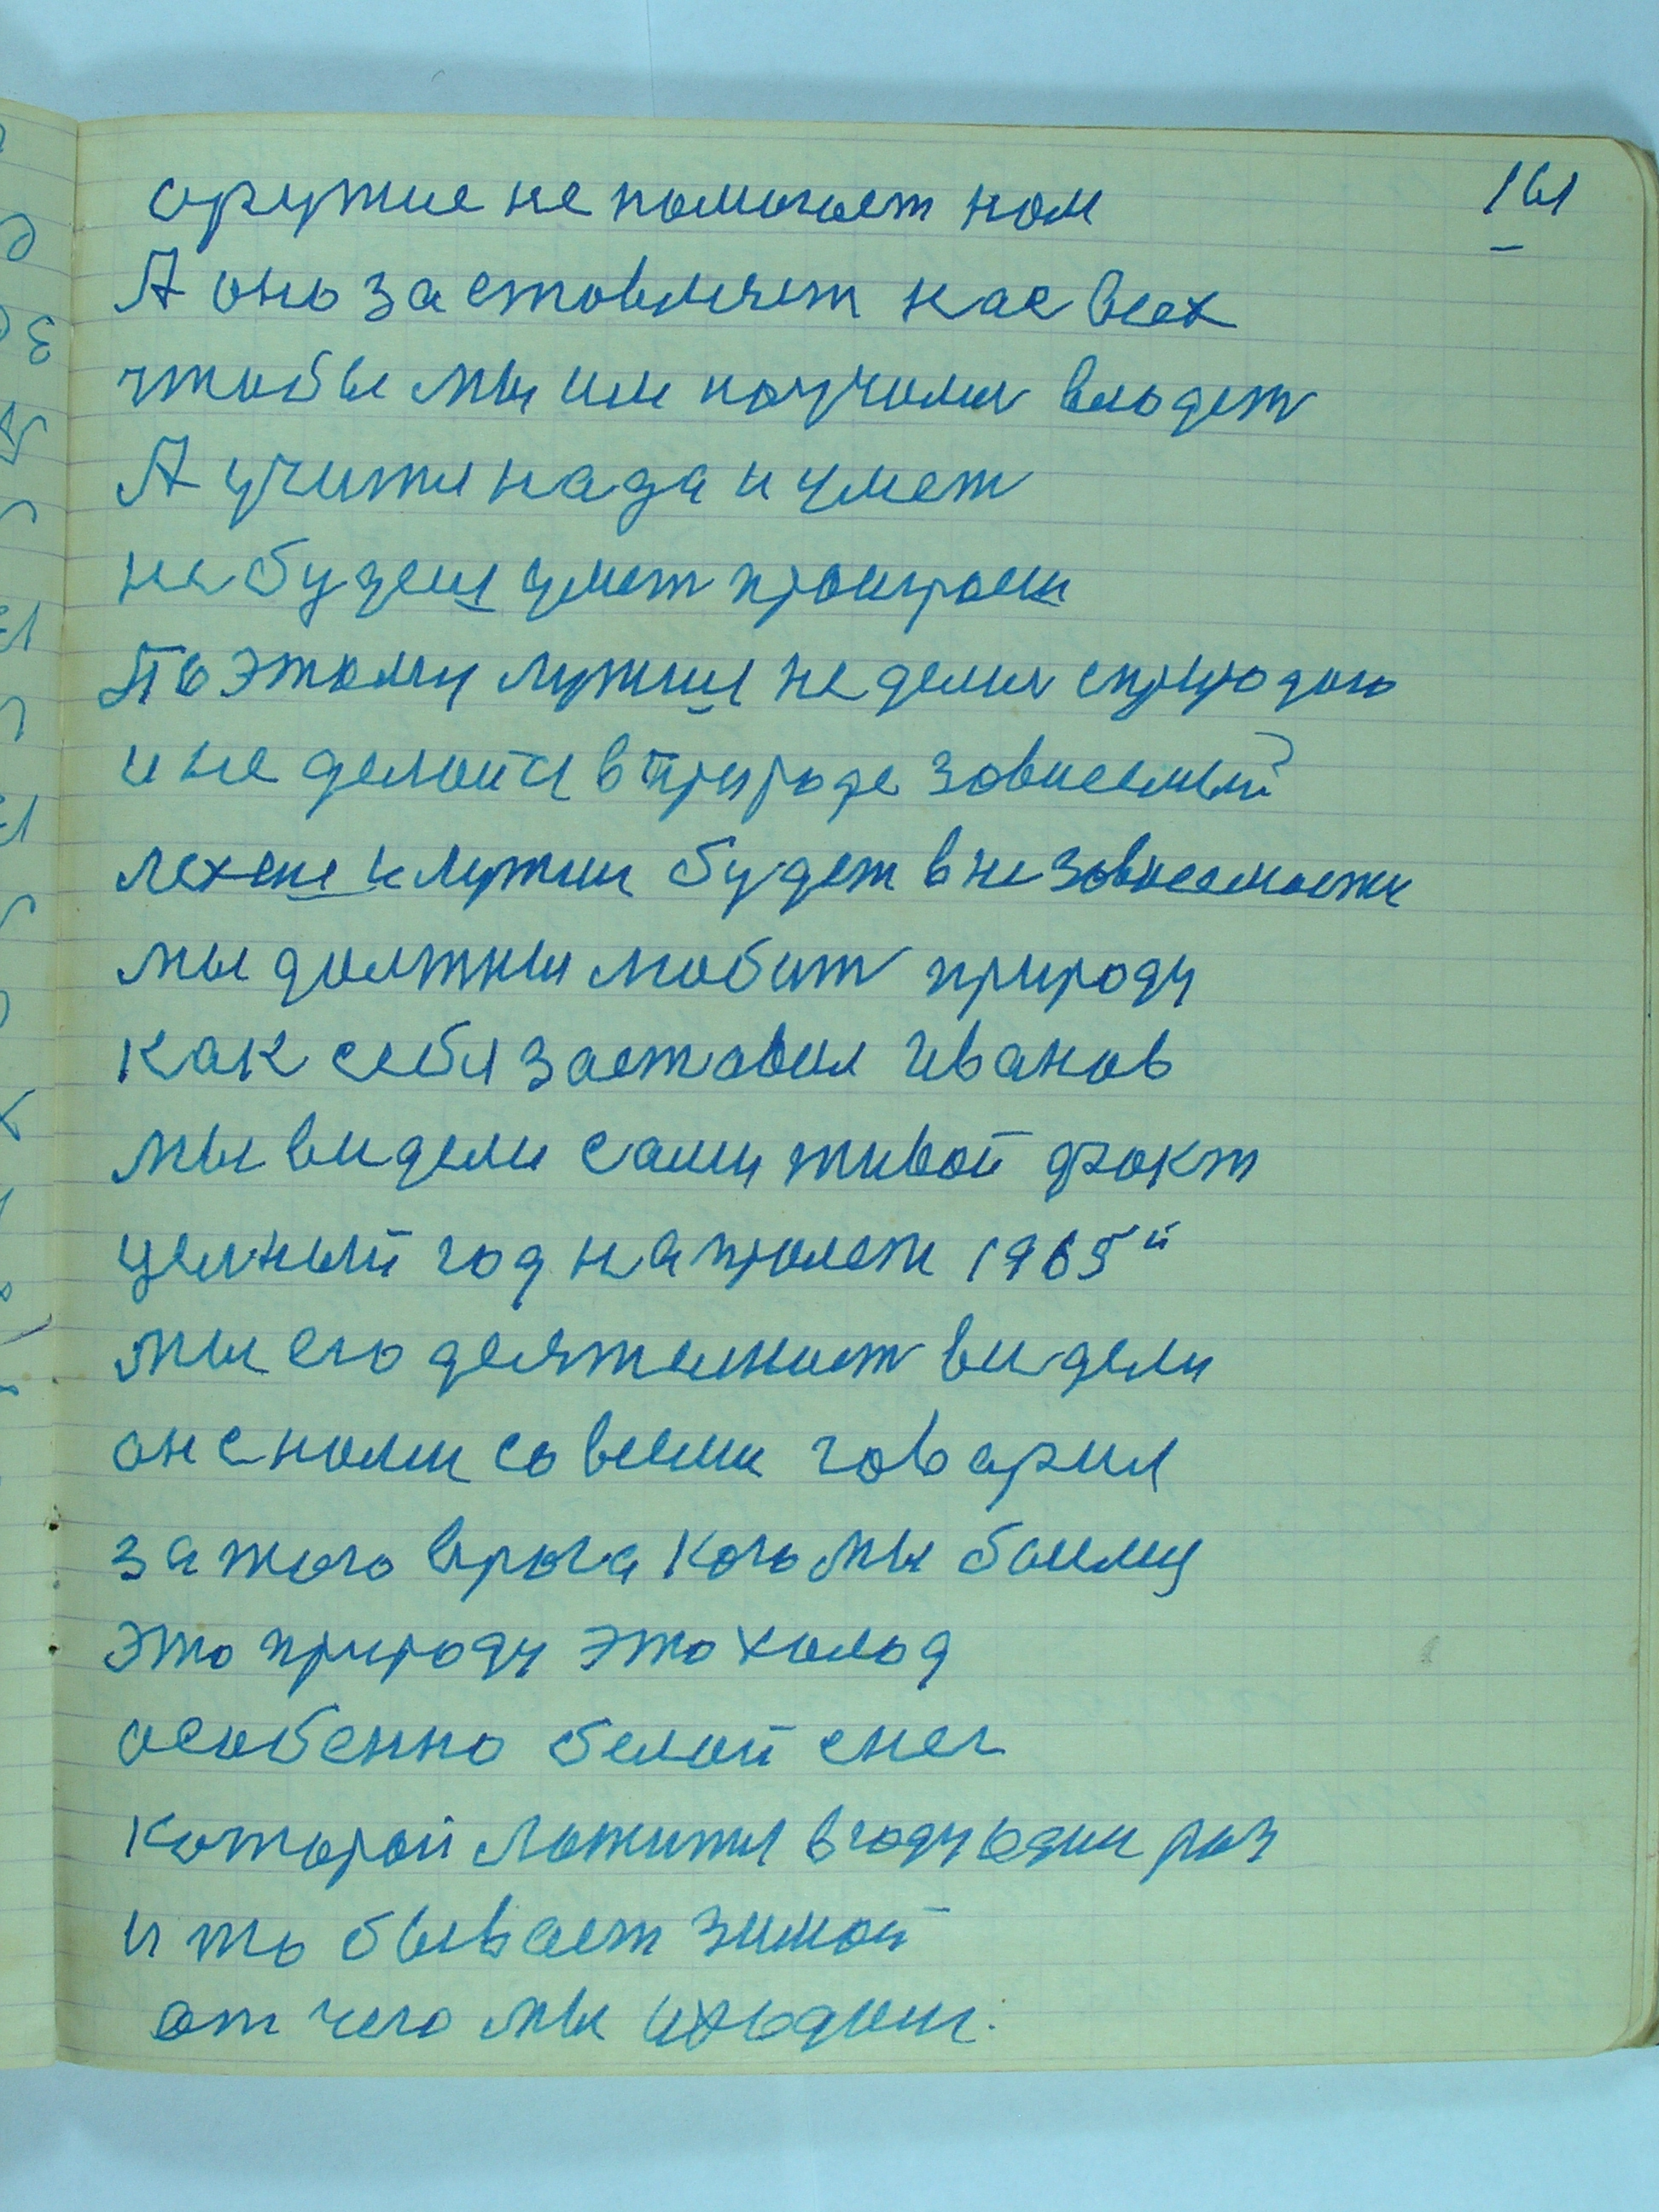 161
оружие не помогает нам
А оно заставляет нас всех
чтобы мы им научили владет
А учится нада и умет
не будеш умет проиграеш
Поэтому лутши не делис сприродаю
и не делайся в природе зависемый
лехше и лутши будет в независемости
мы должны любит природу
как себя заставил Иванов
мы видели сами живой факт
целный год напролет 1965й
мы его деятелност видели
он снами со всеми говарил
за того врага кого мы боимся
это природу это холод
особенно белой снег
которой ложится в году один раз
и то бывает зимой
от чего мы